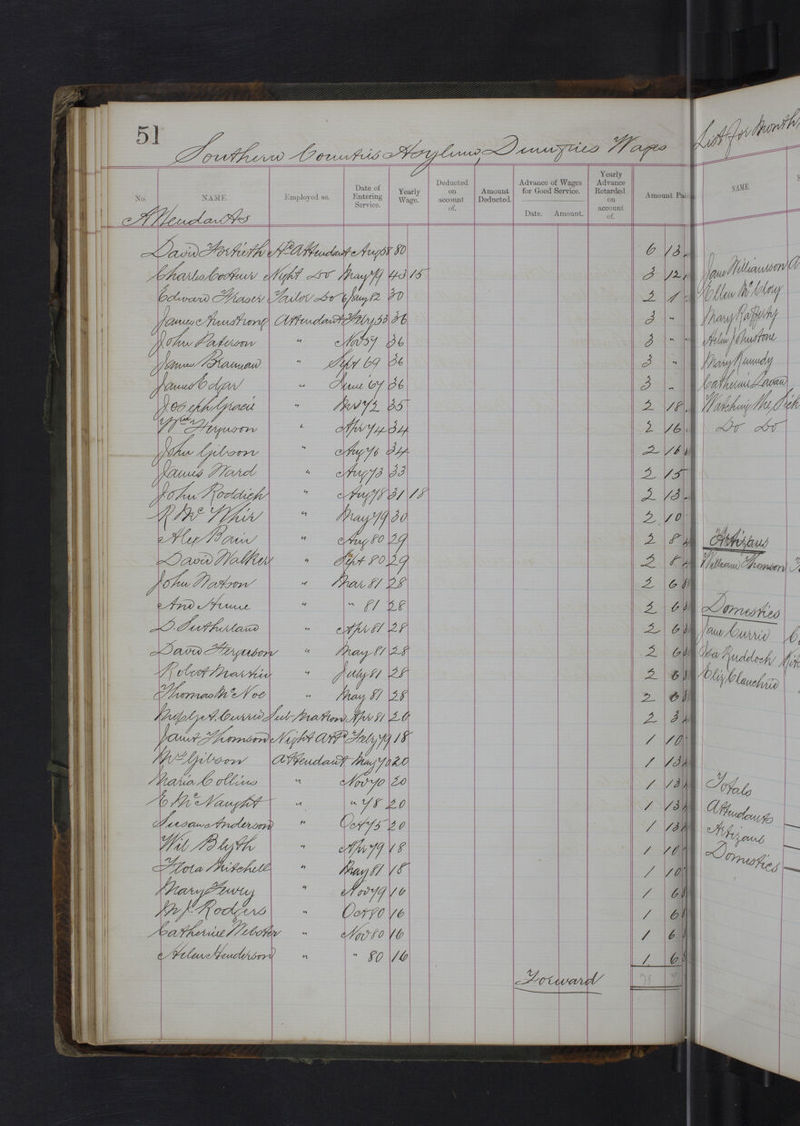 51
Southern Counties Asylum, Dumfries Wages
List for Month
No. NAME. Employed as. Date of Entering Service. Yearly Wage. Deducted on account of. Amount Deducted. Advance of Wages for Good Service. Date. Amount. Yearly Advance Retarded on account of. Amount Pai
Attendants
David Hd Attendant Aug 58 80 6 13
Charles Night Do May 79 43 15 3 12
Edward Fraser Tailor Do 6 Jany 82 30 2 1
James Armstrong Attendant Feby 53 36 3 -
John Paterson " Nov 59 36 3 - -
James Brannan " Sept 69 36 3 -
James Edgar " June 67 36 3 -
Joseph Gracie " Nov 72 35 2 18
Wm Ferguson " Apr 74 34 2 16
John Gibson " Aug 76 34 2 16
James Ward " Aug 73 33 2 15
John Roddick " Aug 78 31 18 2 13
R Mc Whir " May 79 30 2 10
Alex Bain " Aug 80 29 2 8
David Walker " Sept 80 29 2 8
John Watson " Mar 81 28 2 6
And " " 81 28 2 6
D. Sutherland " Apr 81 28 2 6
David Ferguson " May 81 28 2 6
Robert Martin " July 81 28 2 6
Thomas McNoe " May 81 28 2 6
Currie Sub Matron Apr 81 26 2 3
Thomson Night Att Feby 79 18 1 10
Gibson Attendant May 70 20 1 13
Maria Collins " Nov 70 20 1 13
E McNaught " " 78 20 1 13
Susan Anderson " Oct 75 20 1 13
Wil Blyth " Apr 79 18 1 10
Flora Mitchell " May 81 18 1 10
Mary " Nov 79 16 1 6
Rodgers " Oct 80 16 1 6
Catherine Webster " Nov 80 16 1 6
Helen Henderson " " 80 16 1 6
Forward
NAME
Jane Williamson
Ellen McCloy
Mary Rafferty
Helen Johnstone
Mary
Catherine
Watching the Sick
Do Do
Artizans
William Thomson
Domestics
Jane Currie
Ruddock
Eliz Clanchrie
Totals
Attendants
Artizans
Domestics